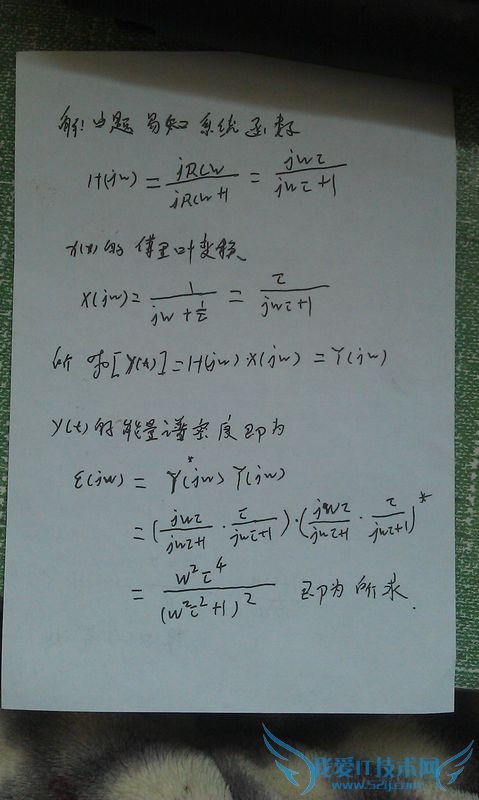 解：由题易知系统函数
H(jw) = jRCw / (jRCw+1) = jwτ / (jwτ+1)
x(t)的傅里叶变换
X(jw) = 1 / (jw + 1/τ) = τ / (jwτ+1)
所 [y(t)] = H(jw)·X(jw) = Y(jw)
y(t)的能量谱密度即为
ε(jw) = Y*(jw) Y(jw)
= (jwτ/(jwτ+1) · τ/(jwτ+1)) · (jwτ/(jwτ+1) · τ/(jwτ+1))*
= w²τ⁴ / (w²τ²+1)² 即为所求.
我爱IT技术网
www.52ij.com